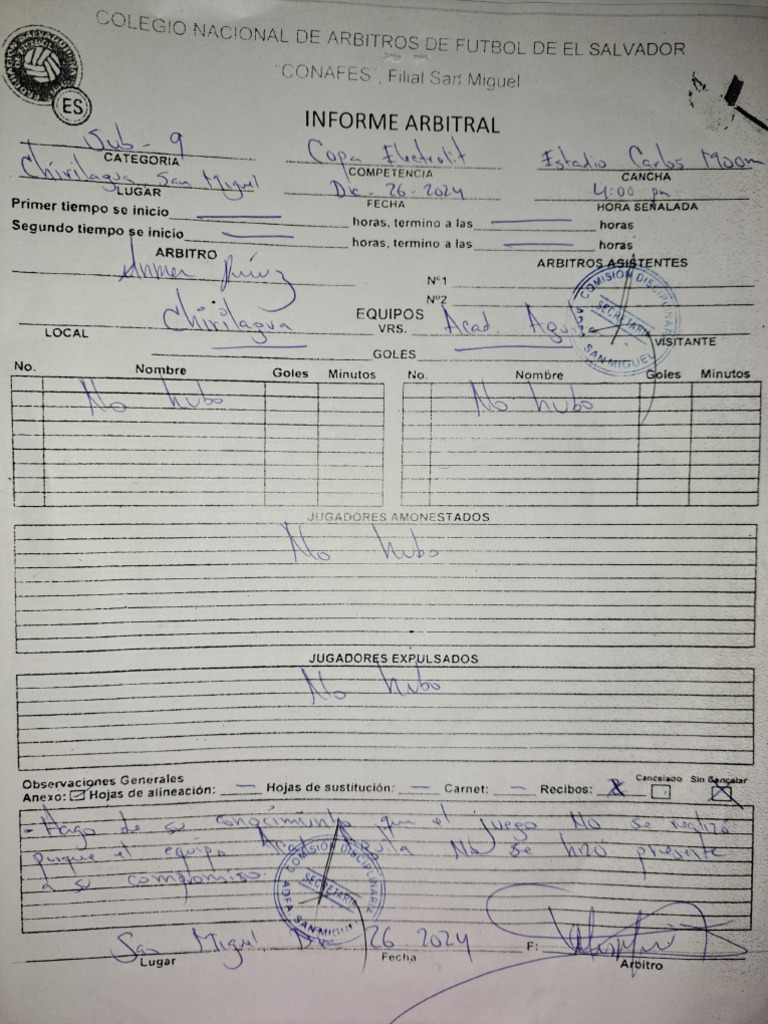 COLEGIO NACIONAL DE ARBITROS DE FUTBOL DE EL SALVADOR
"CONAFES", Filial San Miguel
ES
INFORME ARBITRAL
Sub - 9 Copa Electrolit Estadio Carlos Moon
CATEGORIA COMPETENCIA CANCHA
Chirilagua San Miguel Dic - 26 - 2024 4:00 pm
LUGAR FECHA HORA SEÑALADA
Primer tiempo se inicio horas, termino a las horas
Segundo tiempo se inicio horas, termino a las horas
ARBITRO ARBITROS ASISTENTES
Nº1
Nº2
EQUIPOS
Chirilagua VRS. Acad.
LOCAL VISITANTE
GOLES
COMISIÓN DISCIPLINARIA
SECRETARIA
ADFA SAN MIGUEL
No. Nombre Goles Minutos No. Nombre Goles Minutos
No hubo No hubo
JUGADORES AMONESTADOS
No hubo
JUGADORES EXPULSADOS
No hubo
Observaciones Generales Cancelado Sin Cancelar
Anexo: Hojas de alineación: Hojas de sustitución: Carnet: Recibos: X X
- Hago de su conocimiento que el juego No se realizó
porque el equipo Acad. Aguila No se hizo presente
a su compromiso.
COMISIÓN DISCIPLINARIA
SECRETARIA
ADFA SAN MIGUEL
San Miguel, Dic 26 2024 F:
Lugar Fecha Arbitro